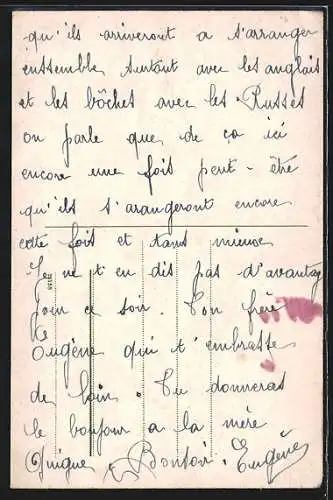 qu'ils ariveront a s'arranger
enssemble surtout avec les anglais
et les bôches avec les Russes
on parle que de ça ici
encore une fois peut-être
qu'ils s'arangeront encore
cette fois et tant mieux
Je ne t'en dis pas d'avantag
pour ce soir. Ton frère
Eugène qui t'embrasse
de loin. Tu donneras
le bonjour a la mère
Bonsoir. Eugène